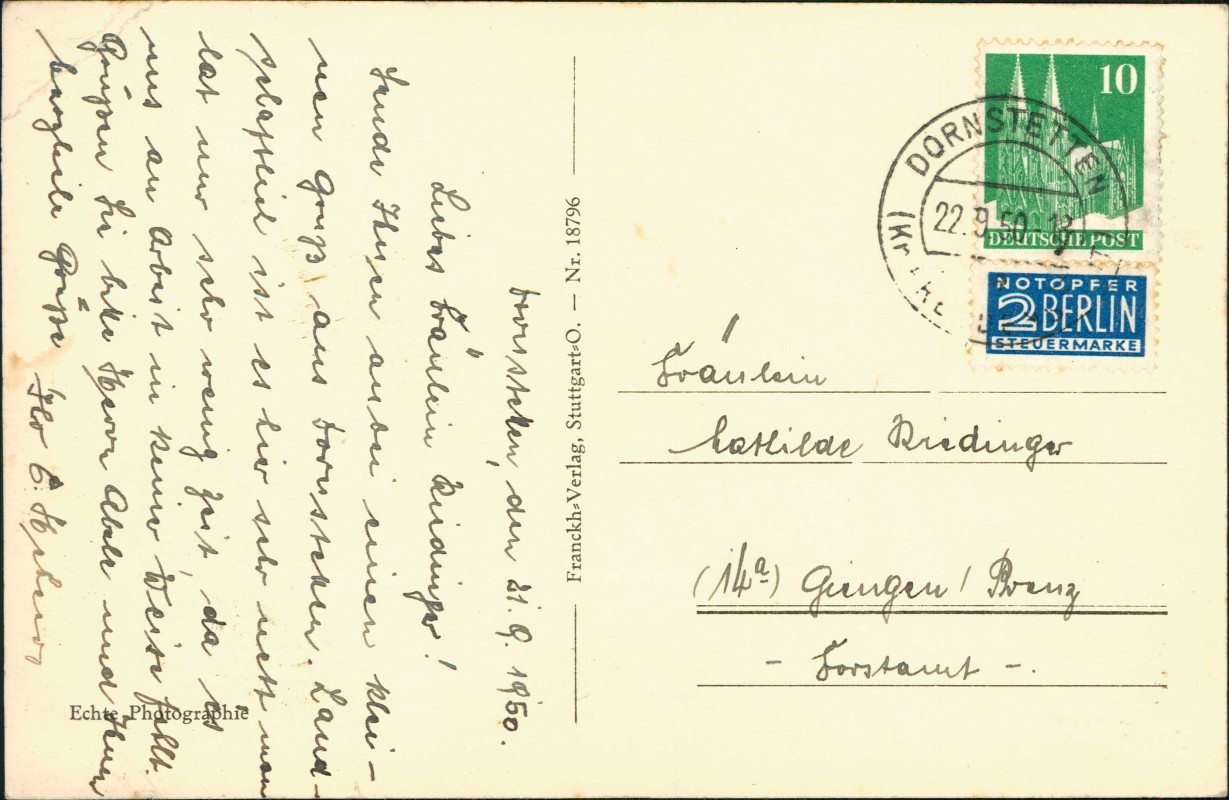 Dornstetten, den 21.9.1950.
Liebes Fräulein Riedinger!
Sende Ihnen anbei einen klei-
nen Gruß aus Dornstetten. Land-
schaftlich ist es hier sehr nett man
hat nur sehr wenig Zeit, da es
uns an Arbeit in keiner Weise fehlt.
Grüßen Sie bitte Herrn Abele und Ihnen
herzliche Grüße Ihr E.
Echte Photographie
Franckh=Verlag, Stuttgart=O. — Nr. 18796
10
DEUTSCHE POST
DORNSTETTEN
22.9.50
NOTOPFER
2 BERLIN
STEUERMARKE
Fräulein
Mathilde Riedinger
(14a) Giengen / Brenz
- Forstamt -.